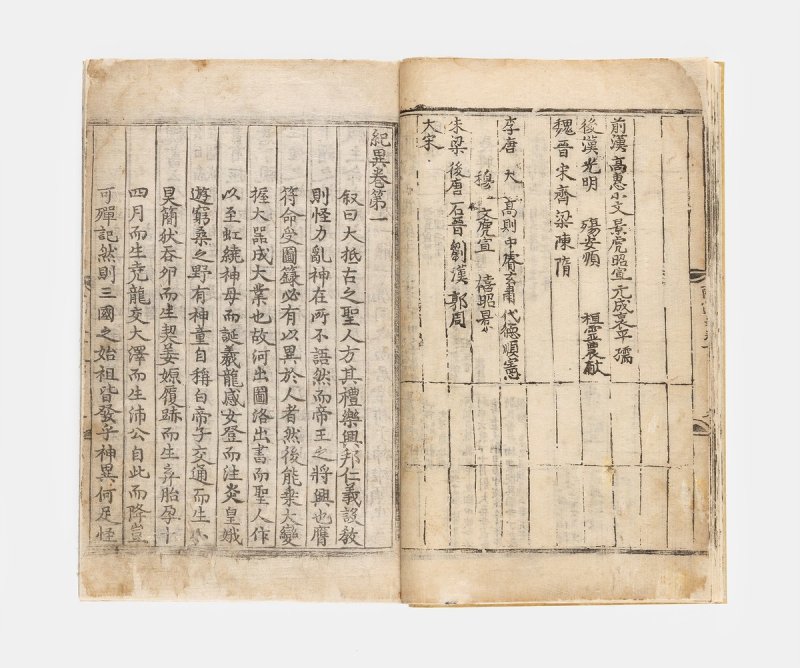 前漢 高惠小文景虎昭宣元成哀平孺
後漢 光明 殤安順 桓靈農獻
魏晉宋齊梁陳隋
李唐 大 高則中睿玄肅代德順憲
穆 文虎宣 僖昭景
朱梁 後唐 石晉 劉漢 郭周
大宋
紀異卷第一
叙曰大抵古之聖人方其禮樂興邦仁義設教
則怪力亂神在所不語然而帝王之將興也膺
符命受圖籙必有以異於人者然後能乗大變
握大器成大業也故河出圖洛出書而聖人作
以至虹繞神母而誕羲龍感女登而注炎皇娥
遊窮桑之野有神童自稱白帝子交通而生小
昊簡狄吞卵而生契姜嫄履跡而生弃胎孕十
四月而生堯龍交大澤而生沛公自此而降豈
可殫記然則三國之始祖皆發乎神異何足怪